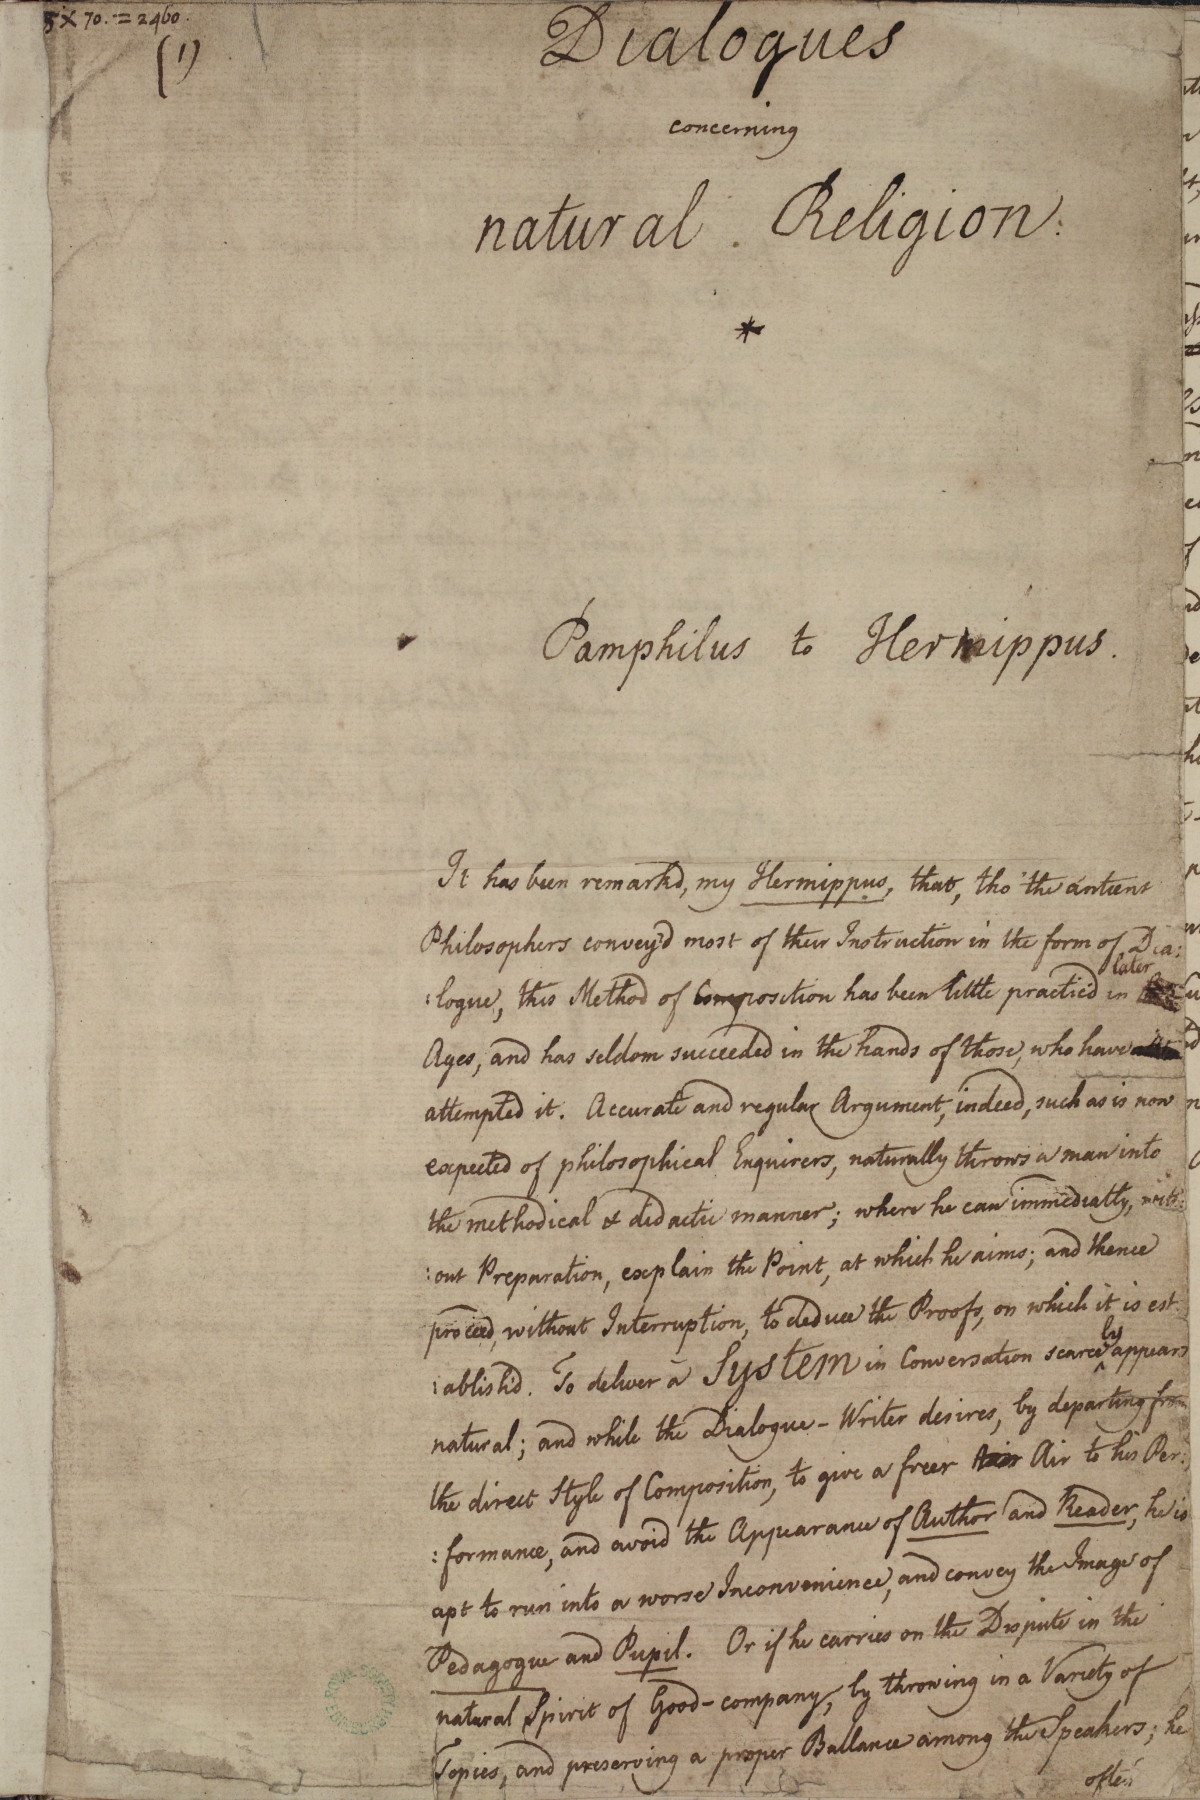 5 × 70. = 2460.
(1)
Dialogues
concerning
natural Religion.
*
Pamphilus to Hermippus.
It has been remark'd, my Hermippus, that, tho' the antient
Philosophers convey'd most of their Instruction in the form of Dia:
:logue, this Method of Composition has been little practic'd in later
Ages, and has seldom succeeded in the hands of those, who have
attempted it. Accurate and regular Argument, indeed, such as is now
expected of philosophical Enquirers, naturally throws a man into
the methodical & didactic manner; where he can immediatly, with:
:out Preparation, explain the Point, at which he aims; and thence
proceed, without Interruption, to deduce the Proofs, on which it is est:
:ablish'd. To deliver a System in Conversation scarcely appears
natural; and while the Dialogue-Writer desires, by departing from
the direct Style of Composition, to give a freer Air to his Per:
:formance, and avoid the Appearance of Author and Reader, he is
apt to run into a worse Inconvenience, and convey the Image of
Pedagogue and Pupil. Or if he carries on the Dispute in the
natural Spirit of Good-company, by throwing in a Variety of
Topics, and preserving a proper Ballance among the Speakers; he
often